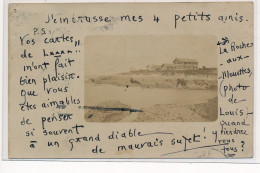 J'embrasse mes 4 petits amis.
P.S.
Vos cartes
de
m'ont fait
bien plaisir.
que vous
êtes aimables
de penser
si souvent
à un grand diable
de mauvais sujet !
La Roche
aux
Mouettes
(photo
de
Louis)
quand
viendrez
vous
?